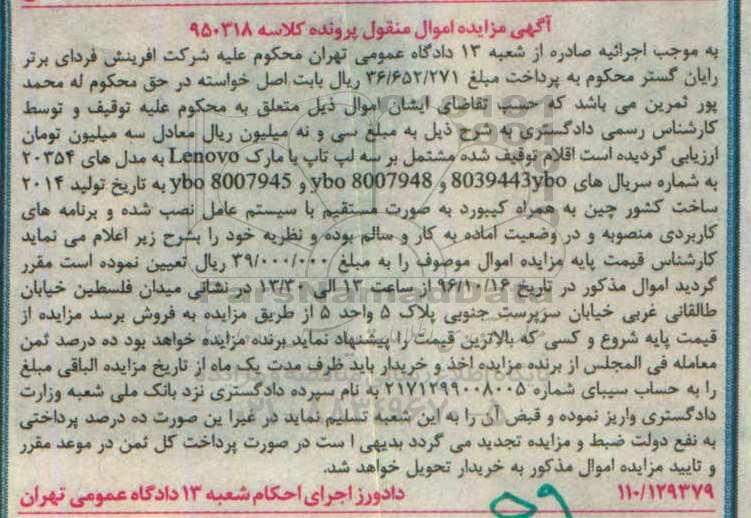 آگهی مزایده اموال منقول پرونده کلاسه ۹۵۰۳۱۸
به موجب اجرائیه صادره از شعبه ۱۳ دادگاه عمومی تهران محکوم علیه شرکت افرینش فردای برتر
رایان گستر محکوم به پرداخت مبلغ ۳۶/۶۵۲/۲۷۱ ریال بابت اصل خواسته در حق محکوم له محمد
پور ثمرین می باشد که حسب تقاضای ایشان اموال ذیل متعلق به محکوم علیه توقیف و توسط
کارشناس رسمی دادگستری به شرح ذیل به مبلغ سی و نه میلیون ریال معادل سه میلیون تومان
ارزیابی گردیده است اقلام توقیف شده مشتمل بر سه لپ تاپ با مارک Lenovo به مدل های ۲۰۳۵۴
به شماره سریال های 8039443ybo و ybo 8007948 و ybo 8007945 به تاریخ تولید ۲۰۱۴
ساخت کشور چین به همراه کیبورد به صورت مستقیم با سیستم عامل نصب شده و برنامه های
کاربردی منصوبه و در وضعیت اماده به کار و سالم بوده و نظریه خود را بشرح زیر اعلام می نماید
کارشناس قیمت پایه مزایده اموال موصوف را به مبلغ ۳۹/۰۰۰/۰۰۰ ریال تعیین نموده است مقرر
گردید اموال مذکور در تاریخ ۹۶/۱۰/۱۶ از ساعت ۱۳ الی ۱۳/۳۰ در نشانی میدان فلسطین خیابان
طالقانی غربی خیابان سرپرست جنوبی پلاک ۵ واحد ۵ از طریق مزایده به فروش برسد مزایده از
قیمت پایه شروع و کسی که بالاترین قیمت را پیشنهاد نماید برنده مزایده خواهد بود ده درصد ثمن
معامله فی المجلس از برنده مزایده اخذ و خریدار باید ظرف مدت یک ماه از تاریخ مزایده الباقی مبلغ
را به حساب سیبای شماره ۲۱۷۱۲۹۹۰۰۸۰۰۵ به نام سپرده دادگستری نزد بانک ملی شعبه وزارت
دادگستری واریز نموده و قبض آن را به این شعبه تسلیم نماید در غیرا ین صورت ده درصد پرداختی
به نفع دولت ضبط و مزایده تجدید می گردد بدیهی ا ست در صورت پرداخت کل ثمن در موعد مقرر
و تایید مزایده اموال مذکور به خریدار تحویل خواهد شد.
۱۱۰/۱۲۹۳۷۹ دادورز اجرای احکام شعبه ۱۳ دادگاه عمومی تهران
۵۹
ParsNamadData